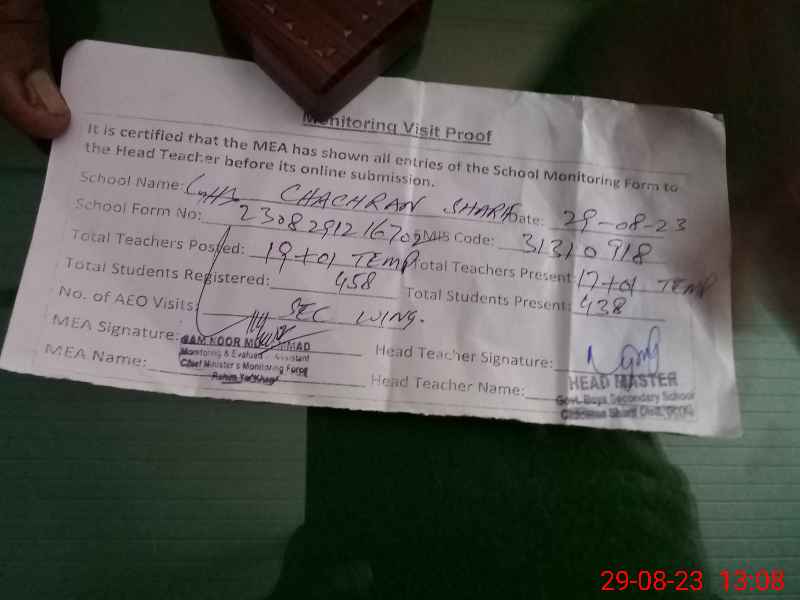 Monitoring Visit Proof
It is certified that the MEA has shown all entries of the School Monitoring Form to
the Head Teacher before its online submission.
School Name: CHACHRAN SHARIF Date: 29-08-23
School Form No: EMIS Code: 31310918
Total Teachers Posted: 19+01 TEMP Total Teachers Present: 17+01 TEMP
Total Students Registered: 458 Total Students Present: 438
No. of AEO Visits: SEC WING.
MEA Signature: Head Teacher Signature:
MEA Name: Head Teacher Name:
Monitoring & Evaluation Assistant
Chief Minister's Monitoring Force
Rahim Yar Khan
HEAD MASTER
Govt. Boys Secondary School
29-08-23 13:08